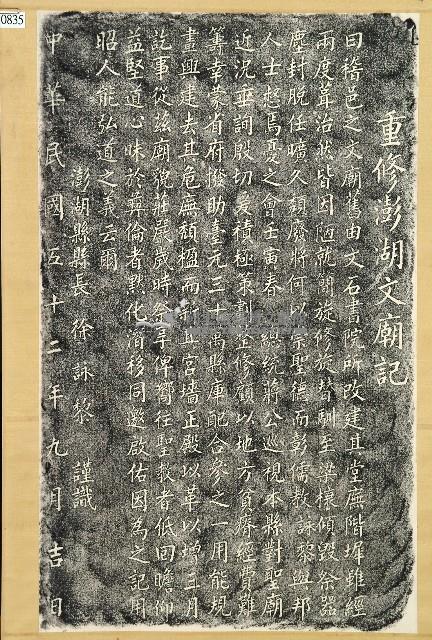 0835
重修澎湖文廟記
曰稽邑之文廟舊由文石書院所改建其堂廡階墀雖經
兩度葺治然皆因陋就簡旋修旋替馴至梁檁傾毀祭器
塵封脫任曠久頹廢將何以崇聖德而彰儒教詠黎與邦
人士惄焉憂之會壬寅春 總統蔣公巡視本縣對聖廟
近況垂詢殷切爰積極策劃重修顧以地方貧瘠經費難
籌幸蒙省府撥助臺元三十萬縣庫配合參之一用能規
畫興建去其危廡頹楹而新其宮墻正殿以革以增三月
訖事從茲廟貌莊嚴歲時祭享俾嚮往聖教者低回瞻仰
益堅道心昧於彝倫者熟化潛移同邀啟佑因為之記用
昭人能弘道之義云爾
澎湖縣縣長 徐詠黎 謹識
中華民國五十二年九月吉日